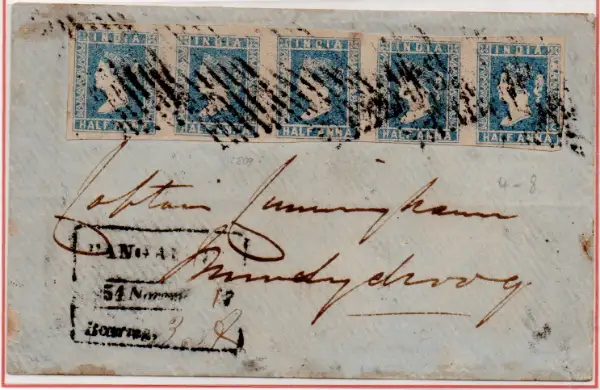 INDIA INDIA INDIA INDIA INDIA
HALF ANNA HALF ANNA HALF ANNA HALF ANNA HALF ANNA
4-8
Captain Cunninghame
Nundydroog
BANGAL
54 Novem 17
Bearing 3